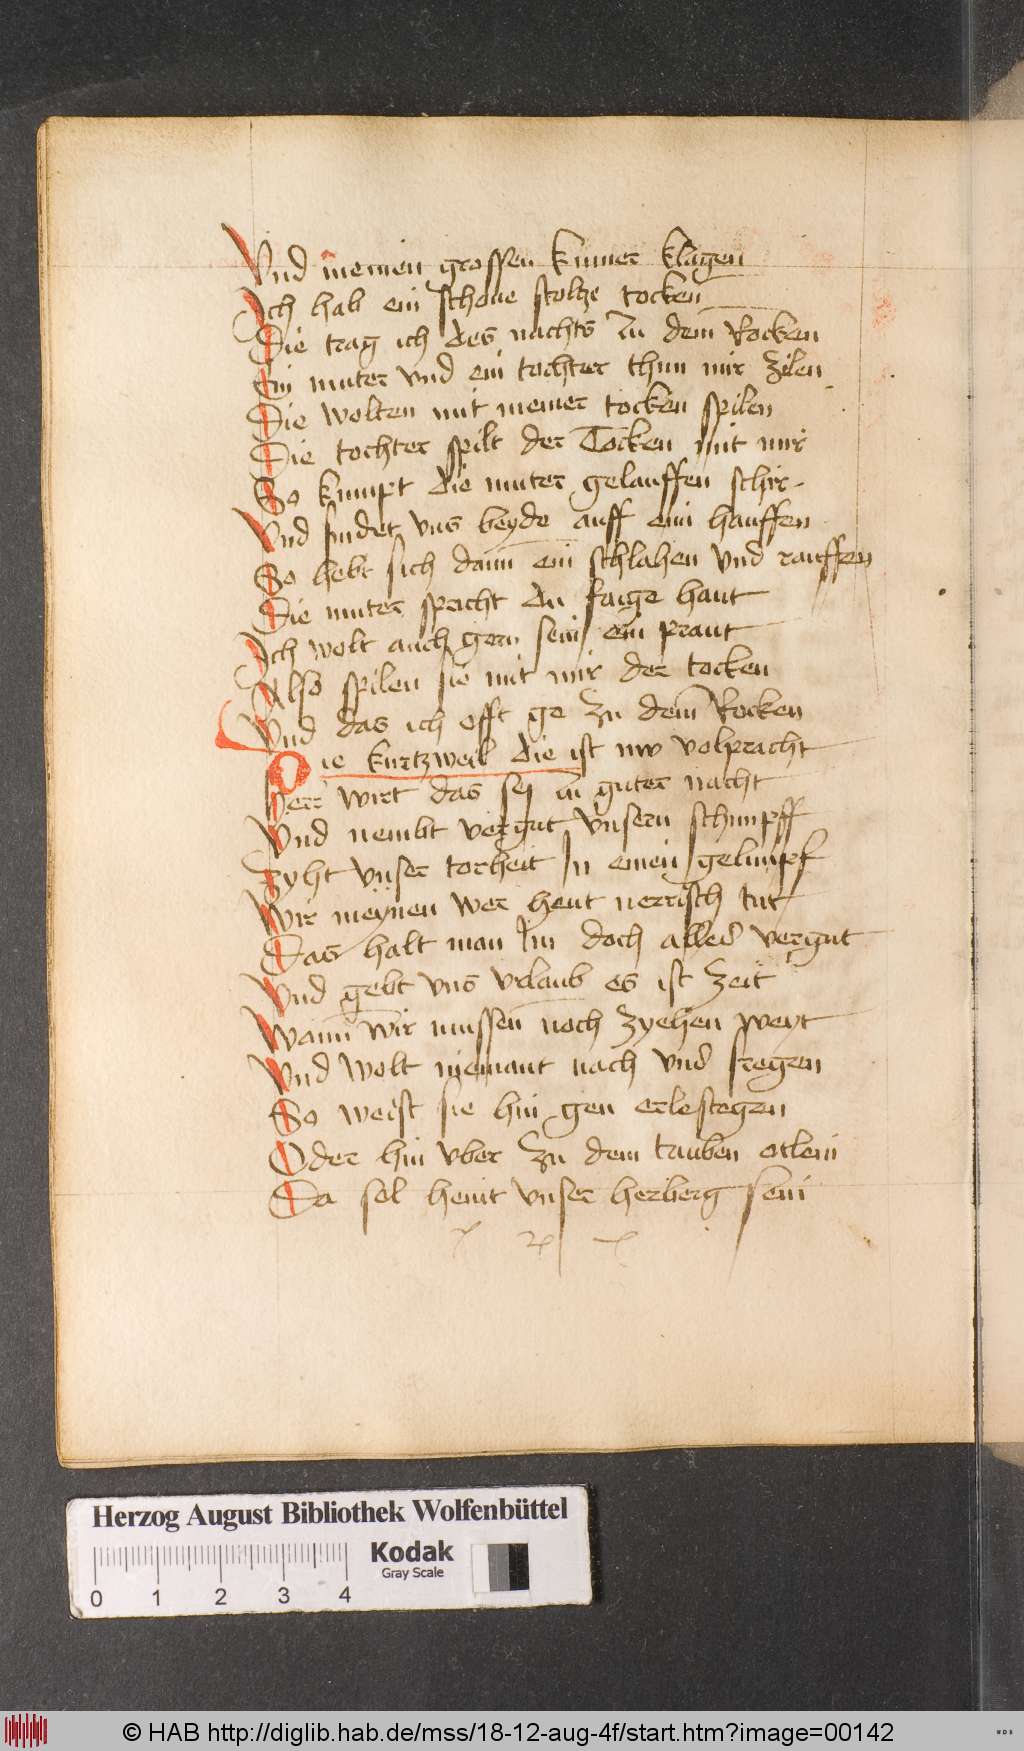 Vnd meinen grossen kumer klagen
Ich hab ein schone stoltze tocken
Die trag ich des nachts zu dem Rocken
Ein muter vnd ein tochter thun mir zilen
Die wolten mit meiner tocken spilen
Die tochter spilt der Tocken mit mir
So kumpt die muter gelauffen schir
Vnd findet vns beyde auff eim hauffen
So hebt sich dann ein schlahen vnd rauffen
Die muter spricht du faige haut
Ich wolt auch gern sein ein praut
Also spilen sie mit mir der tocken
Vnd das ich offt ge zu dem Rocken
Die kurtzweil die ist nw volpracht
Herr wirt das sey in guter nacht
Vnd nembt vergut vnsern schimpff
Zyht vnser torheit In einen gelimpf
Wir meynen wer heut nerrisch tut
Das halt man Im doch alles vergut
Vnd gebt vns vrlaub es ist zeit
Wann wir mussen noch zyehen weyt
Vnd wolt niemant nach vns fregen
So weist sie hin gen erlestegen
Oder hin vber zu dem tauben etlein
Da sol heint vnser herberg sein
Herzog August Bibliothek Wolfenbüttel
Kodak
Gray Scale
0 1 2 3 4
© HAB http://diglib.hab.de/mss/18-12-aug-4f/start.htm?image=00142